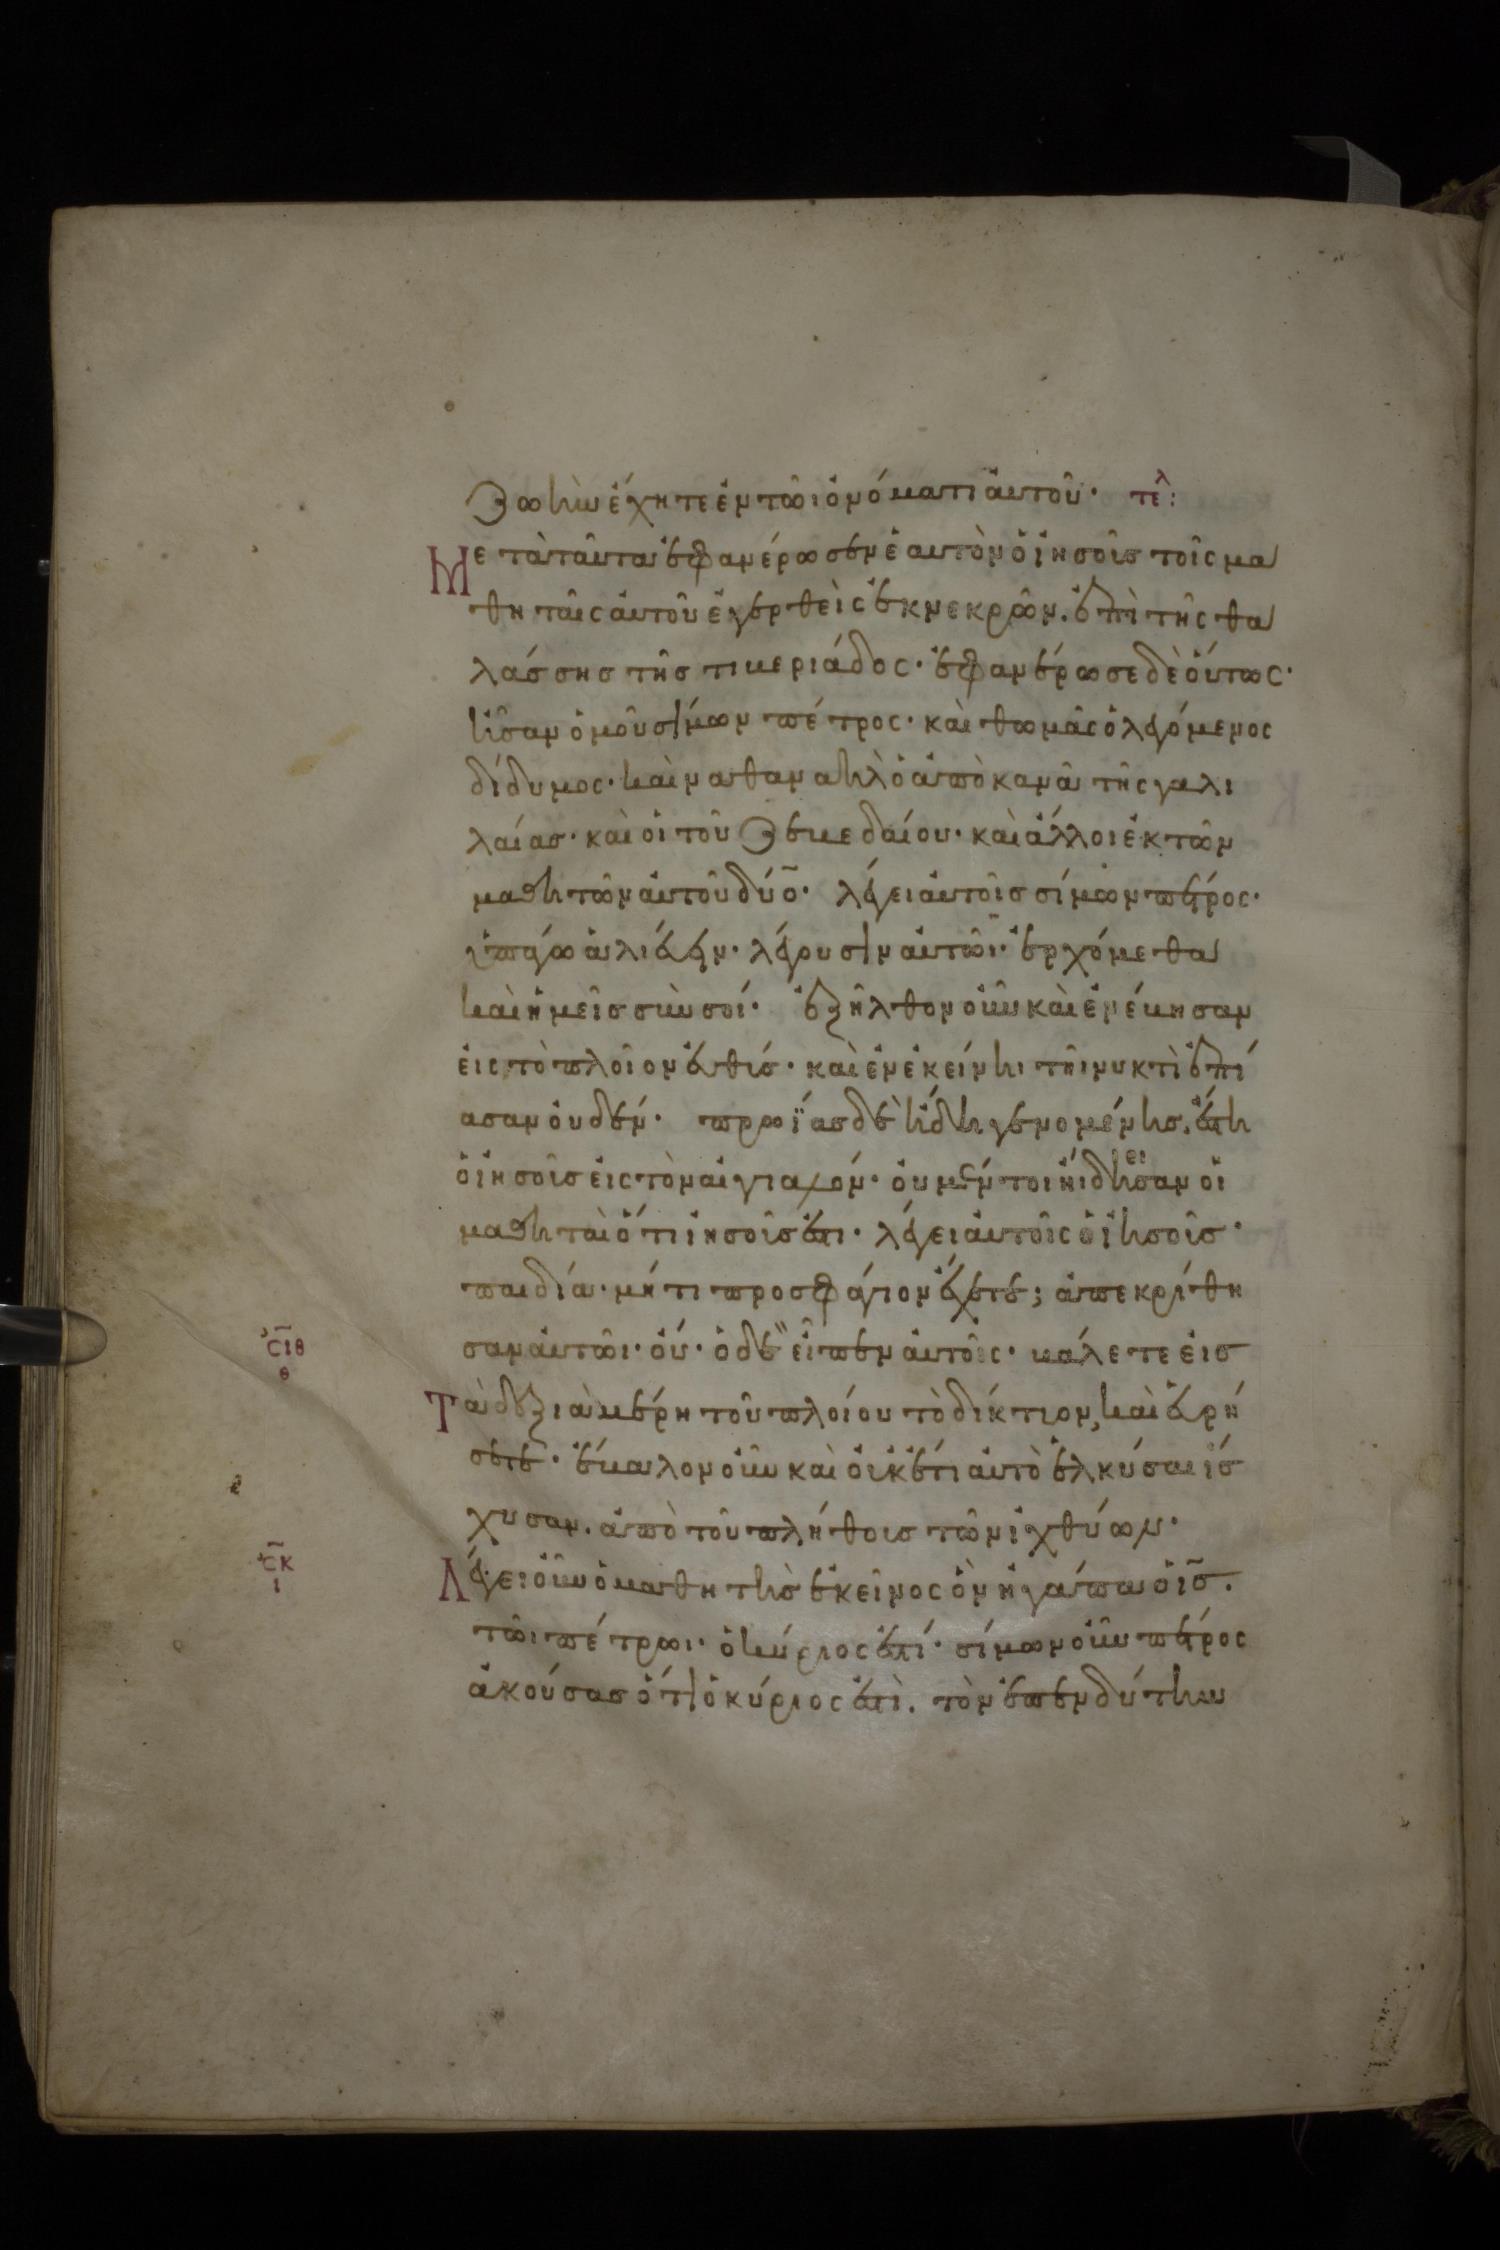 ζωὴν ἔχητε ἐν τῶι ὀνόματι ἀυτοῦ· τελ:
Μετὰ ταῦτα ἐφανέρωσεν ἑαυτὸν ὁ ἰησοῦς τοῖς μα
θηταῖς ἀυτοῦ ἐγερθεὶς ἐκ νεκρῶν. ἐπὶ τῆς θα
λάσσης τῆς τιβεριάδος· ἐφανέρωσε δὲ ὅυτως·
ἦσαν ὁμοῦ σίμων πέτρος· καὶ θωμᾶς ὁ λεγόμενος
δίδυμος· καὶ ναθαναὴλ ὁ ἀπὸ κανᾶ τῆς γαλι
λαίας· καὶ οἱ τοῦ ζεβεδαίου· καὶ ἄλλοι ἐκ τῶν
μαθητῶν ἀυτοῦ δύο· λέγει ἀυτοῖς σίμων πέτρος·
ὑπάγω ἁλιέυειν· λέγουσιν ἀυτῶι· ἐρχόμεθα
καὶ ἡμεῖς σὺν σοί· ἐξῆλθον οὖν καὶ ἐνέβησαν
ἐις τὸ πλοῖον ἐυθύς· καὶ ἐν ἐκείνηι τῆι νυκτὶ ἐπί
ασαν ὀυδέν· πρωΐας δὲ ἤδη γενομένης. ἔστη
ὁ ἰησοῦς ἐις τὸν ἀιγιαλόν· ὀυ μέντοι ἤιδησαν οἱ
ει
μαθηταὶ ὅτι ἰησοῦς ἐστι· λέγει ἀυτοῖς ὁ ἰησοῦς·
παιδία· μή τι προσφάγιον ἔχετε; ἀπεκρίθη
σαν ἀυτῶι· ὄυ· ὁ δὲ εἶπεν ἀυτοῖς· βάλετε ἐις
σιθ
θ
Τὰ δεξιὰ μέρη τοῦ πλοίου τὸ δίκτυον, καὶ ἑυρή
σετε· ἔβαλον οὖν καὶ ὀυκέτι ἀυτὸ ἑλκύσαι ἴσ
χυσαν. ἀπὸ τοῦ πλήθους τῶν ἰχθύων·
σκ
ι
Λέγει οὖν ὁ μαθητὴς ἐκεῖνος ὃν ἠγάπα ὁ ις.
τῶι πέτρωι· ὁ κύριος ἐστί· σίμων οὖν πέτρος
ἀκούσας ὅτι ὁ κύριος ἐστὶ. τὸν ἐπενδύτην